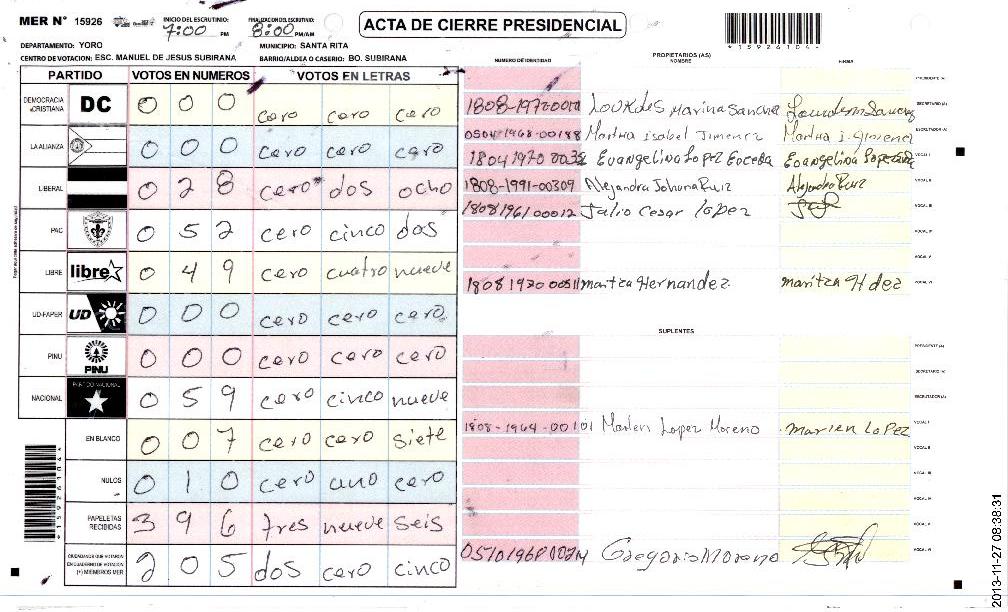 MER N° 15926
INICIO DEL ESCRUTINIO: 7:00 PM
FINALIZACION DEL ESCRUTINIO: 8:00 PM/AM
ACTA DE CIERRE PRESIDENCIAL
*15926104*
DEPARTAMENTO: YORO
MUNICIPIO: SANTA RITA
CENTRO DE VOTACION: ESC. MANUEL DE JESUS SUBIRANA
BARRIO/ALDEA O CASERIO: BO. SUBIRANA
PARTIDO VOTOS EN NUMEROS VOTOS EN LETRAS
DEMOCRACIA CRISTIANA DC 0 0 0 cero cero cero
LA ALIANZA 0 0 0 cero cero cero
LIBERAL 0 2 8 cero dos ocho
PAC 0 5 2 cero cinco dos
LIBRE libre 0 4 9 cero cuatro nueve
UD-FAPER UD 0 0 0 cero cero cero
PINU PINU 0 0 0 cero cero cero
NACIONAL PARTIDO NACIONAL 0 5 9 cero cinco nueve
EN BLANCO 0 0 7 cero cero siete
NULOS 0 1 0 cero uno cero
PAPELETAS RECIBIDAS 3 9 6 tres nueve seis
CIUDADANOS QUE VOTARON EN CUADERNO DE VOTACION (+) MIEMBROS MER 2 0 5 dos cero cinco
*15926104*
NUMERO DE IDENTIDAD
PROPIETARIOS (AS)
NOMBRE
FIRMA
PRESIDENTE (A)
Lourdes Marina Sanchez SECRETARIO (A)
0504-1968-00188 Martha isabel Jimenez Martha i. Jimenez ESCRUTADOR (A)
Evangelina Lopez VOCAL I
1808-1991-00309 Alejandra Johana Ruiz Alejandra Ruiz VOCAL II
1808 1961 00012 Julio Cesar lopez VOCAL III
VOCAL IV
VOCAL V
maritza Hernandez. maritza Hdez VOCAL VI
SUPLENTES
PRESIDENTE (A)
SECRETARIO (A)
ESCRUTADOR (A)
1808-1964-00101 Marlen Lopez Moreno marlen LoPez VOCAL I
VOCAL II
VOCAL III
VOCAL IV
VOCAL V
Gregorio Moreno VOCAL VI
2013-11-27 08:38:31